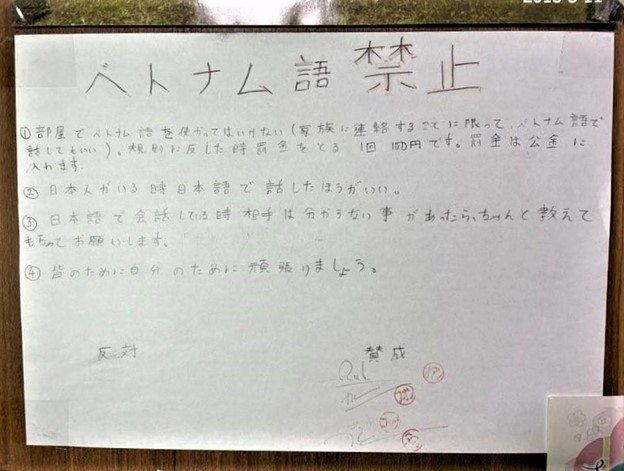 ベトナム語 禁止
①部屋でベトナム語を使かってはいけない(家族に連絡することに限って、ベトナム語で
話してもいい)。規則に反した時罰金をとる 1回 100円です。罰金は公金に
入れます。
②日本人がいる時日本語で話したほうがいい。
③日本語で会話している時相手は分からない事があったら、ちゃんと教えて
もらってお願いします。
④皆のために自分のために頑張りましょう。
反対 賛成